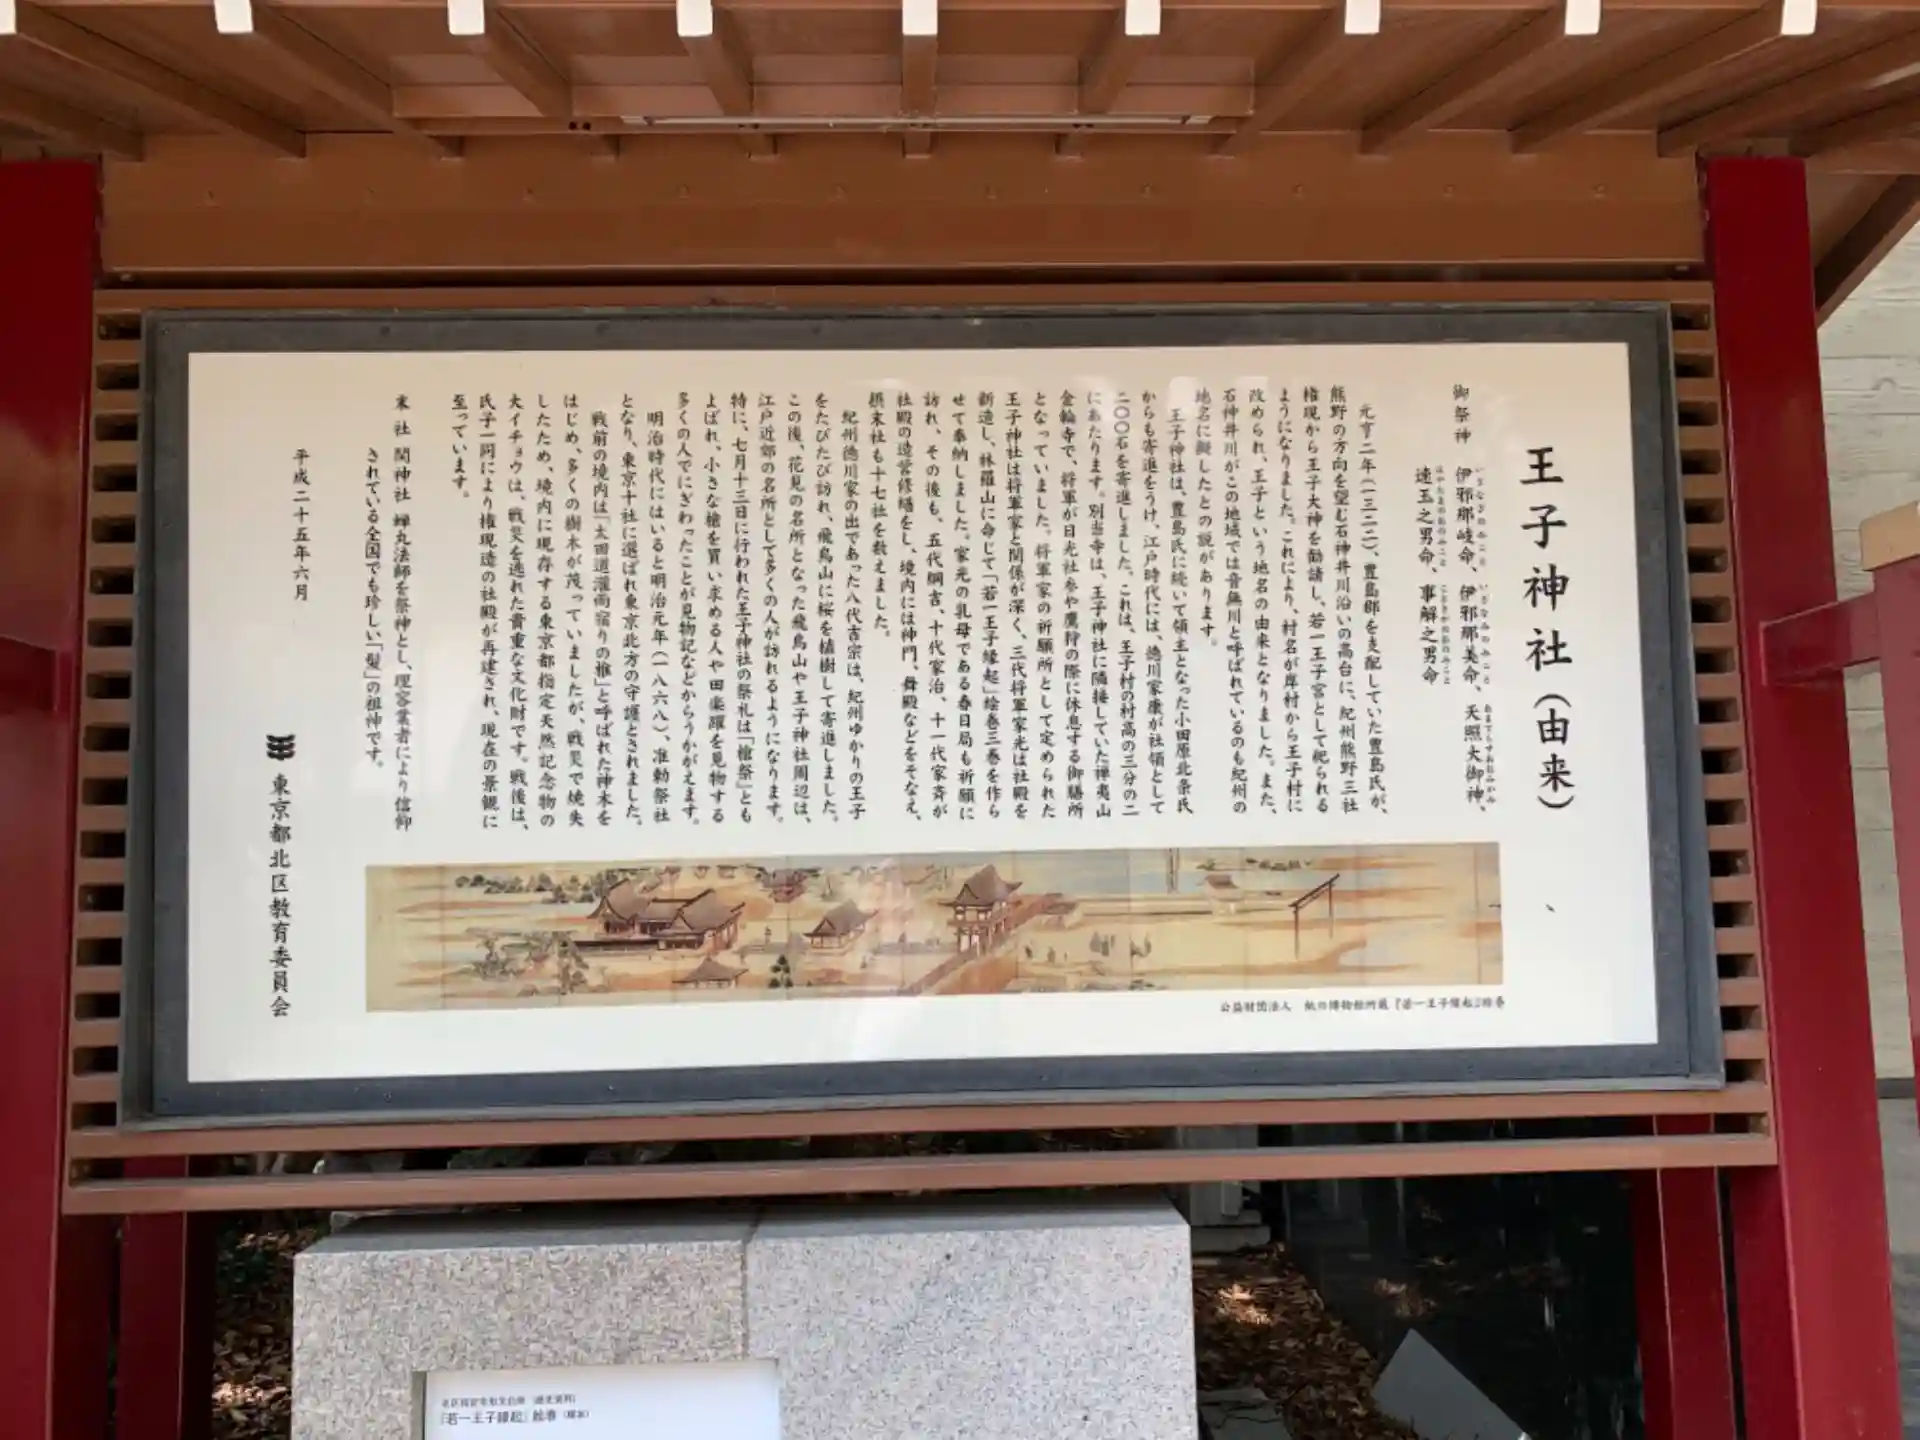 王子神社（由来）
御祭神　伊邪那岐命、伊邪那美命、天照大御神、
いざなぎのみこと　いざなみのみこと　あまてらすおおみかみ
速玉之男命、事解之男命
はやたまのおのみこと　ことさかのおのみこと
元亨二年（一三二二）、豊島郡を支配していた豊島氏が、
熊野の方向を望む石神井川沿いの高台に、紀州熊野三社
権現から王子大神を勧請し、若一王子宮として祀られる
ようになりました。これにより、村名が岸村から王子村に
改められ、王子という地名の由来となりました。また、
石神井川がこの地域では音無川と呼ばれているのも紀州の
地名に擬したとの説があります。
王子神社は、豊島氏に続いて領主となった小田原北条氏
からも寄進をうけ、江戸時代には、徳川家康が社領として
二〇〇石を寄進しました。これは、王子村の村高の三分の二
にあたります。別当寺は、王子神社に隣接していた禅夷山
金輪寺で、将軍が日光社参や鷹狩の際に休息する御膳所
となっていました。将軍家の祈願所として定められた
王子神社は将軍家と関係が深く、三代将軍家光は社殿を
新造し、林羅山に命じて「若一王子縁起」絵巻三巻を作ら
せて奉納しました。家光の乳母である春日局も祈願に
訪れ、その後も、五代綱吉、十代家治、十一代家斉が
社殿の造営修繕をし、境内には神門、舞殿などをそなえ、
摂末社も十七社を数えました。
紀州徳川家の出であった八代吉宗は、紀州ゆかりの王子
をたびたび訪れ、飛鳥山に桜を植樹して寄進しました。
この後、花見の名所となった飛鳥山や王子神社周辺は、
江戸近郊の名所として多くの人が訪れるようになります。
特に、七月十三日に行われた王子神社の祭礼は「槍祭」とも
よばれ、小さな槍を買い求める人や田楽躍を見物する
多くの人でにぎわったことが見物記などからうかがえます。
明治時代にはいると明治元年（一八六八）、准勅祭社
となり、東京十社に選ばれ東京北方の守護とされました。
戦前の境内は「太田道灌雨宿りの椎」と呼ばれた神木を
はじめ、多くの樹木が茂っていましたが、戦災で焼失
したため、境内に現存する東京都指定天然記念物の
大イチョウは、戦災を逃れた貴重な文化財です。戦後は、
氏子一同により権現造の社殿が再建され、現在の景観に
至っています。
末社　関神社　蝉丸法師を祭神とし、理容業者により信仰
されている全国でも珍しい「髪」の祖神です。
平成二十五年六月
東京都北区教育委員会
公益財団法人　紙の博物館所蔵『若一王子縁起』絵巻
「若一王子縁起」絵巻